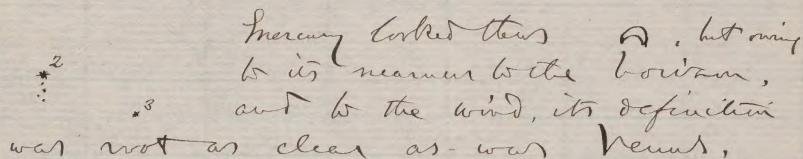 Mercury looked thus , but owing
2
to its nearness to the horizon,
3
and to the wind, its definition
was not as clear as was Venus.